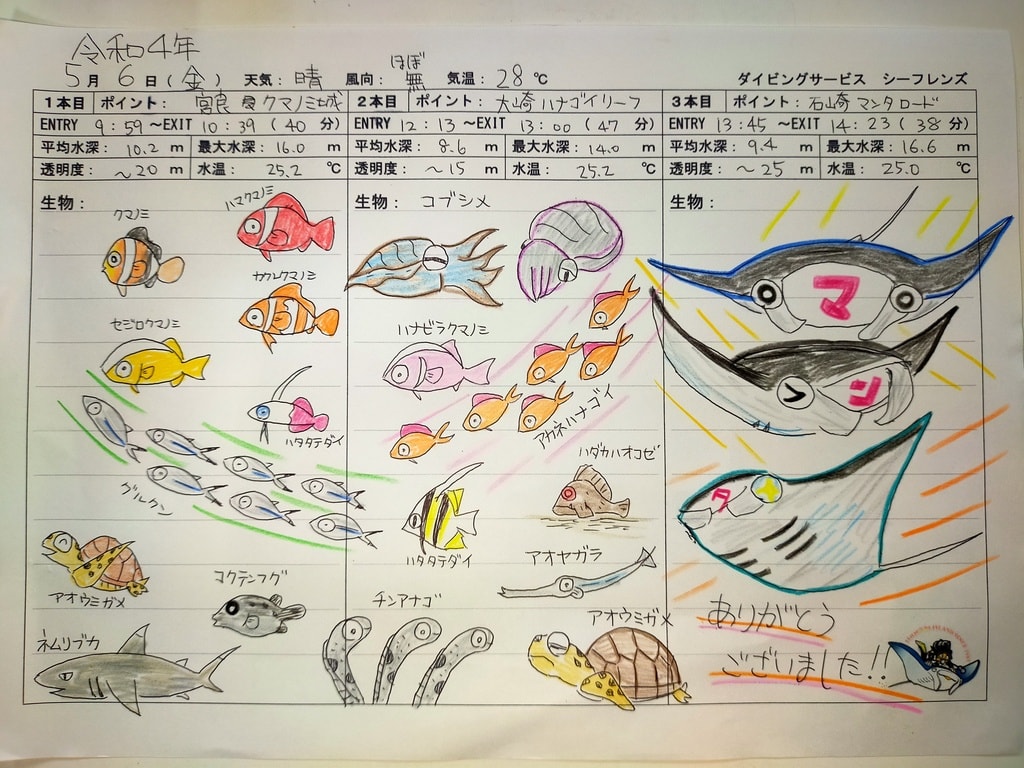 令和4年
5月6日(金) 天気:晴 風向:ほぼ無 気温:28℃ ダイビングサービス シーフレンズ
1本目 ポイント: 宮良 クマノミ城 2本目 ポイント: 大崎ハナゴイリーフ 3本目 ポイント:石崎マンタロード
ENTRY 9:59~EXIT 10:39(40分) ENTRY 12:13~EXIT 13:00(47分) ENTRY 13:45~EXIT 14:23(38分)
平均水深:10.2m 最大水深:16.0m 平均水深:8.6m 最大水深:14.0m 平均水深:9.4m 最大水深:16.6m
透明度:~20m 水温:25.2℃ 透明度:~15m 水温:25.2℃ 透明度:~25m 水温:25.0℃
生物:
クマノミ
ハマクマノミ
カクレクマノミ
セジロクマノミ
ハタタテダイ
グルクン
アオウミガメ
コクテンフグ
ネムリブカ
生物: コブシメ
ハナビラクマノミ
アカネハナゴイ
ハダカハオコゼ
ハタタテダイ
アオヤガラ
チンアナゴ
アオウミガメ
生物:
マ
ン
タ
ありがとう
ございました!!